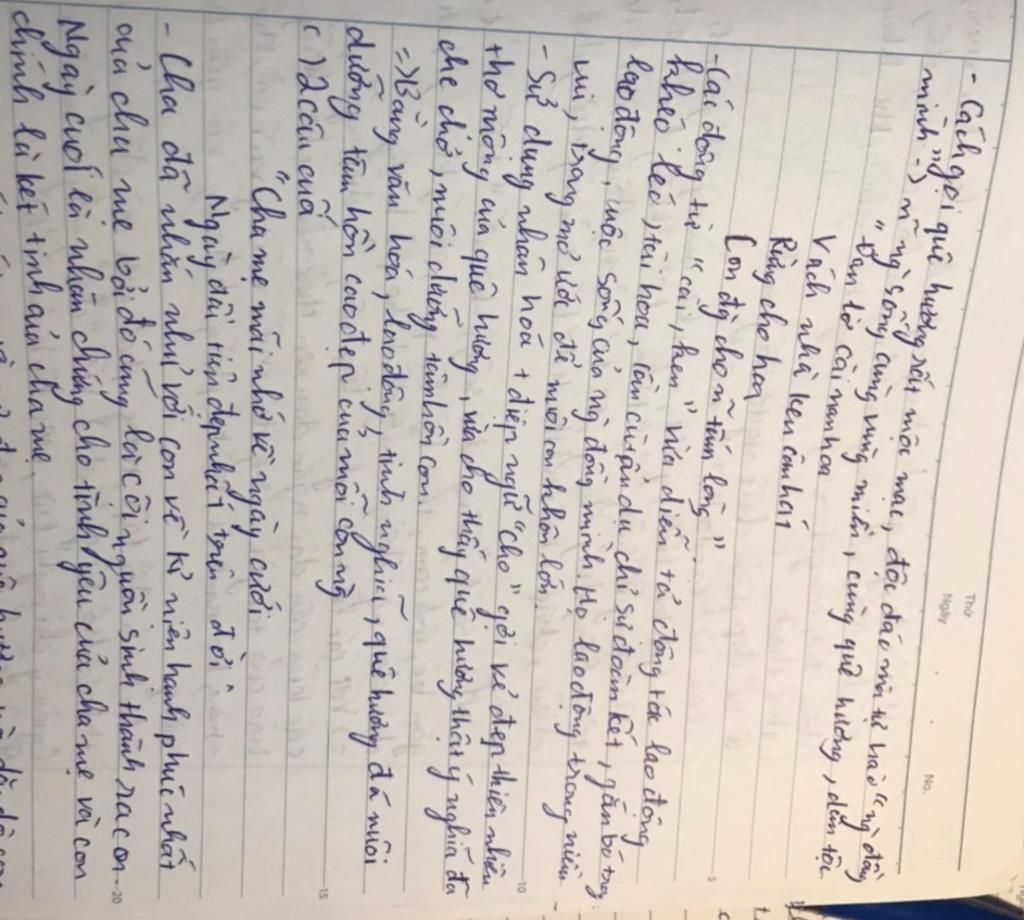 Thứ
Ngày . . No.
- Cách gọi quê hương rất mộc mạc, độc đáo mà tự hào "ng đồng
mình" -> n~ ng sống cùng vùng miền, cùng quê hương, dân tộc
"Đan lờ cài nan hoa
Vách nhà ken câu hát
Rừng cho hoa
Con đg cho n~ tấm lòng"
- Các động từ "cài, ken" vừa diễn tả động tác lao động
khéo léo, tài hoa, cần cù ẩn dụ chỉ sự đoàn kết, gắn bó trog
lao động, cuộc sống của ng đồng mình. Họ lao động trong niềm
vui, trong mơ ước để mỗi con khôn lớn
- Sử dụng nhân hoá + điệp ngữ "cho" gợi vẻ đẹp thiên nhiên
thơ mộng của quê hương, vừa cho thấy quê hương thật ý nghĩa đã
che chở, nuôi dưỡng tâm hồn con.
=> Bằng văn hoá, lao động, tình nghĩa, quê hương đã nuôi
dưỡng tâm hồn cao đẹp của mỗi con ng
c) 2 câu cuối
"Cha mẹ mãi nhớ về ngày cưới
Ngày đầu tiên đẹp nhất trên đời"
- Cha đã nhắn nhủ với con về kỉ niệm hạnh phúc nhất
của cha mẹ bởi đó cũng là cội nguồn sinh thành ra con
Ngày cưới là nhân chứng cho tình yêu của cha mẹ và con
chính là kết tinh của cha mẹ